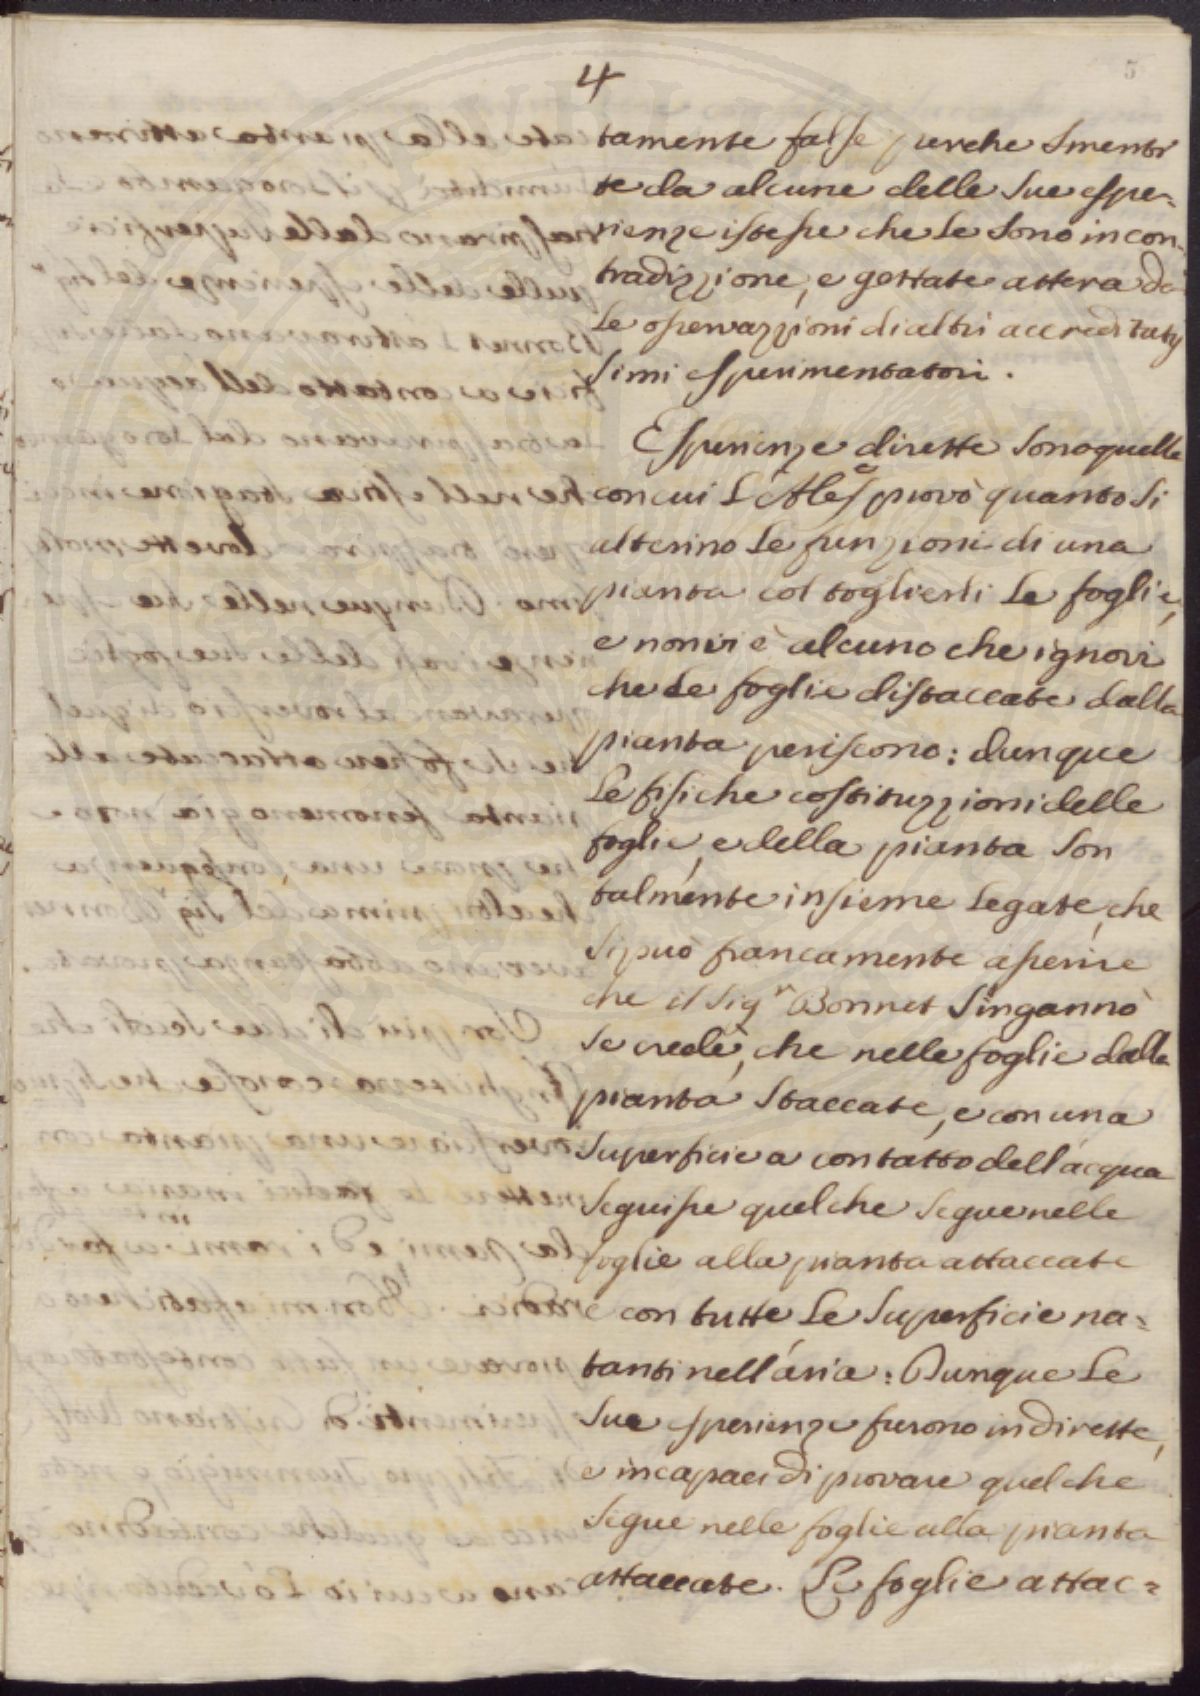 4
5
tamente false perche smenti
te da alcune delle sue espe=
rienze istesse che le sono in con=
tradizzione, e gettate attera da
le osservazzioni di altri accreditatis
simi esperimentatori.
Esperienze dirette sono quelle
con cui l'Ales provò quanto si
alterino le funzioni di una
pianta col toglierli le foglie,
e non vi è alcuno che ignori
che le foglie distaccate dalla
pianta periscono: dunque
le fisiche costituzzioni delle
foglie, e della pianta son
talmente insieme legate, che
si può francamente asserire
che il Sigr Bonnet s'ingannò
se credè, che nelle foglie dalla
pianta staccate, e con una
superficie a contatto dell'acqua
seguisse quel che segue nelle
foglie alla pianta attaccate
e con tutte le superficie na=
tanti nell'aria: Dunque le
sue esperienze furono indirette,
e incapaci di provare quel che
segue nelle foglie alla pianta
attaccate. Le foglie attac=